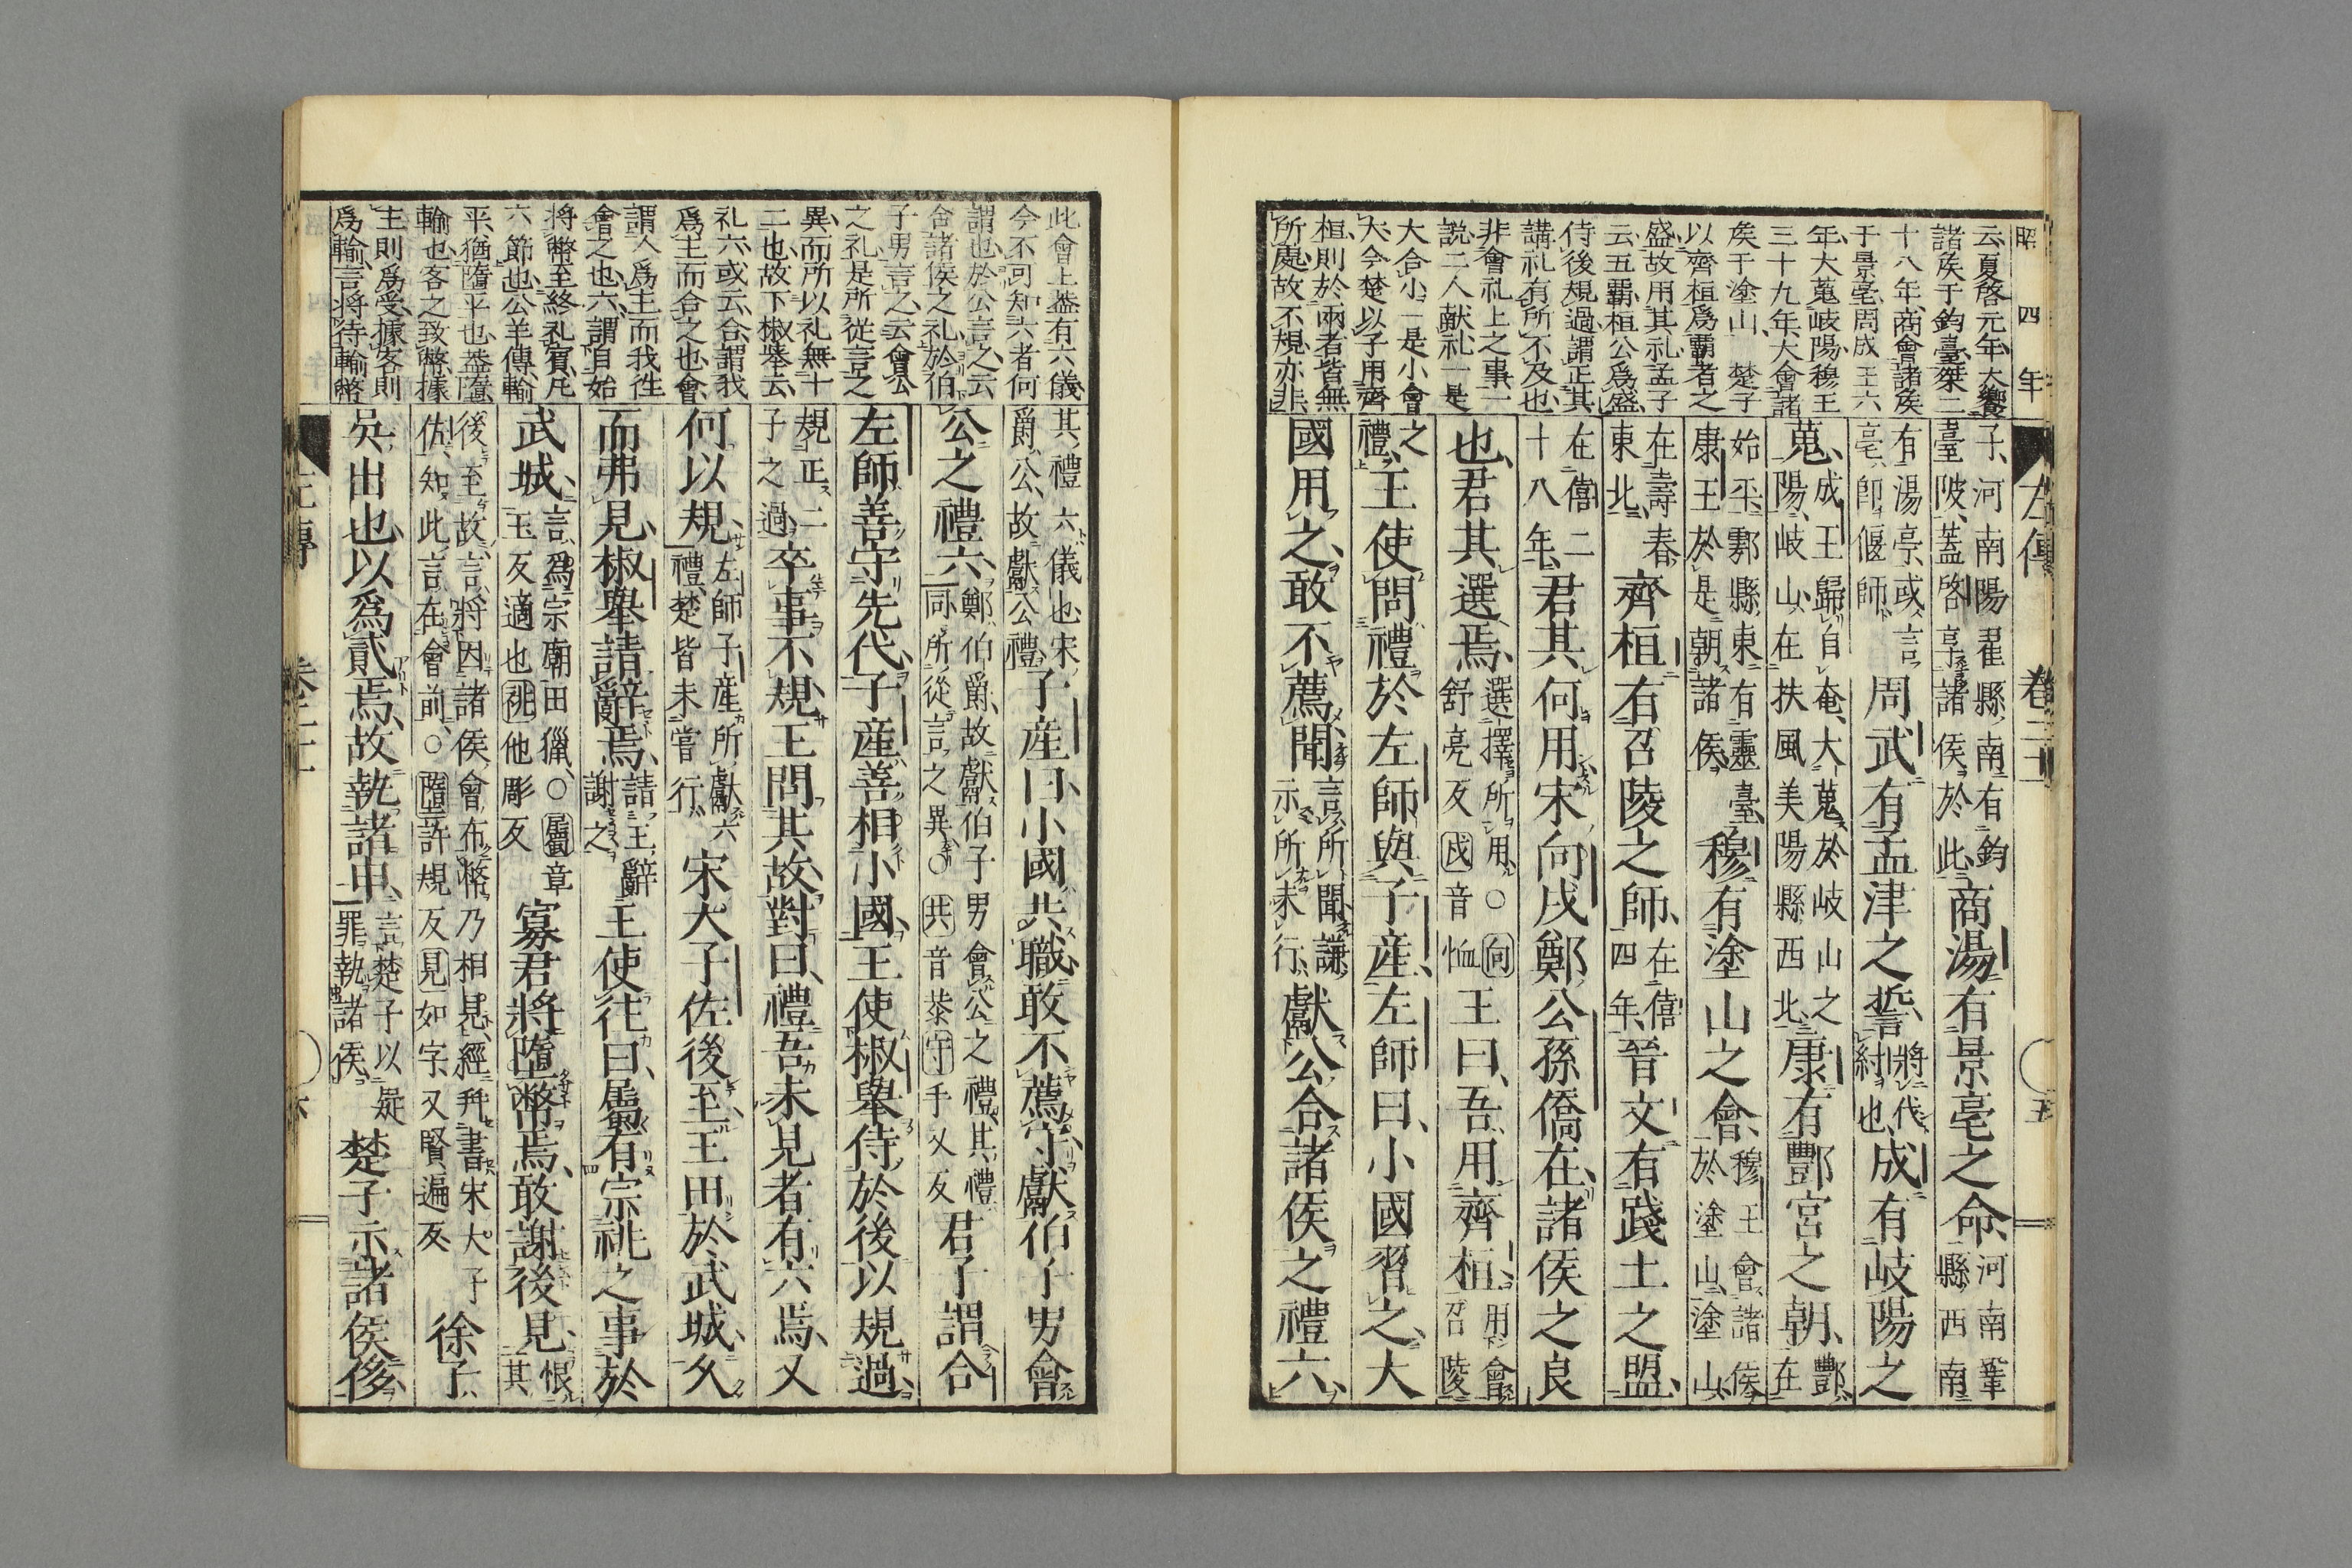 昭四年
云夏啓元年大饗
諸矦于鈞臺桀二
十八年商會諸矦
于景亳周成王六
年大蒐岐陽穆王
三十九年大會諸
矦于塗山 楚子
以齊桓爲霸者之
盛故用其礼孟子
云五霸桓公爲盛
侍後規過謂正其
講礼有所不及也
非會礼上之事一
説二人献礼一是
大合小一是小會
大今楚以子用齊
桓則於兩者皆無
所處故不規亦非
左傳 卷二十一 五
子河南陽翟縣南有鈞
臺陂蓋啓享諸侯於此商湯有景亳之命河南鞏
縣西南
有湯亭或言
亳卽偃師周武有孟津之誓將伐
紂也成有岐陽之
蒐成王歸自奄大蒐於岐山之
陽岐山在扶風美陽縣西北康有酆宮之朝酆在
始平鄠縣東有靈臺
康王於是朝諸侯穆有塗山之會穆王會諸侯
於塗山塗山
在壽春
東北齊桓有召陵之師在僖
四年晉文有踐土之盟
在僖二
十八年君其何用宋向戌鄭公孫僑在諸侯之良
也君其選焉選擇所用○向
舒亮反戌音恤王曰吾用齊桓用會
召陵
之
禮王使問禮於左師與子產左師曰小國習之大
國用之敢不薦聞言所聞謙
示所未行獻公合諸侯之禮六
此會上蓋有六儀
今不可知六者何
謂也於公言之云
合諸侯之礼於伯
子男言之云會公
之礼是所從言之
異而所以礼無十
二也故下椒舉云
礼六或云合謂我
爲主而合之也會
謂人爲主而我徃
會之也六謂自始
將幣至終礼賓凡
六節也公羊傳輸
平猶隋平也蓋隋
輸也客之致幣據
主則爲受據客則
爲輸言將待輸幣
其禮六儀也宋
爵公故獻公禮子產曰小國共職敢不薦守獻伯子男會
公之禮六鄭伯爵故獻伯子男會公之禮其禮
同所從言之異○共音恭守手又反君子謂合
左師善守先代子產善相小國王使椒舉侍於後以規過
規正二
子之過卒事不規王問其故對曰禮吾未見者有六焉又
何以規左師子產所獻六
禮楚皆未嘗行宋大子佐後至王田於武城久
而弗見椒舉請辭焉請王辭
謝之王使徃曰屬有宗祧之事於
武城言爲宗廟田獵○屬章
玉反適也祧他彫反寡君將墮幣焉敢謝後見恨
其
後至故言將因諸侯會布幣乃相見經幷書宋大子
佐知此言在會前○墮許規反見如字又賢遍反徐子
吳出也以爲貳焉故執諸申言楚子以疑
罪執諸侯楚子示諸侯侈
左傳 卷二十一 六